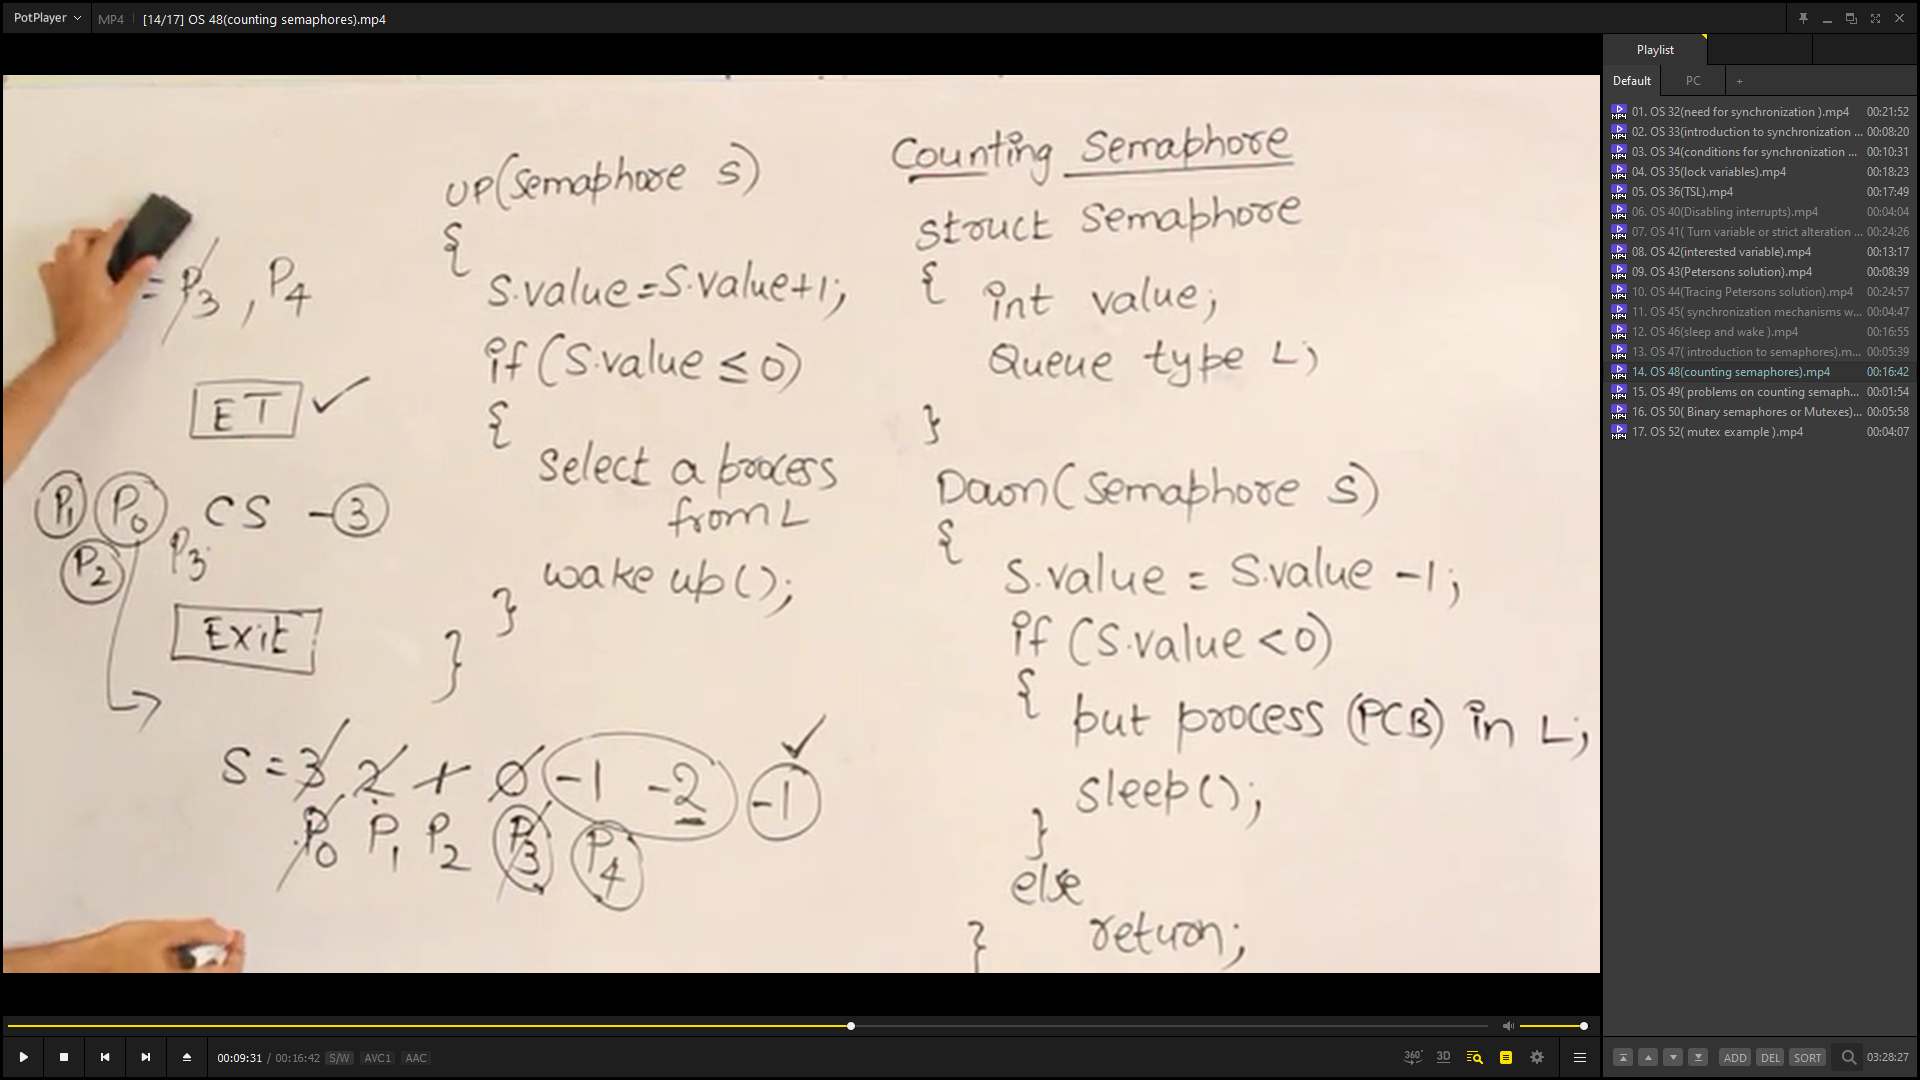 PotPlayer
MP4
[14/17] OS 48(counting semaphores).mp4
UP(Semaphore S)
{
S.value=S.value+1;
if (S.value ≤ 0)
{
Select a process
from L
wake up();
}
}
= P3 , P4
ET ✓
P1 P0 CS -3
P2 P3
Exit
S = 3 2 1 0 -1 -2 -1 ✓
P0 P1 P2 P3 P4
Counting Semaphore
Struct Semaphore
{ int value;
Queue type L;
}
Down(Semaphore S)
{
S.value = S.value -1;
if (S.value < 0)
{ put process (PCB) in L;
sleep();
}
else
return;
}
00:09:31 / 00:16:42 S/W AVC1 AAC
360°
3D
Playlist
Default PC +
01. OS 32(need for synchronization ).mp4 00:21:52
02. OS 33(introduction to synchronization ... 00:08:20
03. OS 34(conditions for synchronization ... 00:10:31
04. OS 35(lock variables).mp4 00:18:23
05. OS 36(TSL).mp4 00:17:49
06. OS 40(Disabling interrupts).mp4 00:04:04
07. OS 41( Turn variable or strict alteration ... 00:24:26
08. OS 42(interested variable).mp4 00:13:17
09. OS 43(Petersons solution).mp4 00:08:39
10. OS 44(Tracing Petersons solution).mp4 00:24:57
11. OS 45( synchronization mechanisms w... 00:04:47
12. OS 46(sleep and wake ).mp4 00:16:55
13. OS 47( introduction to semaphores).m... 00:05:39
14. OS 48(counting semaphores).mp4 00:16:42
15. OS 49( problems on counting semaph... 00:01:54
16. OS 50( Binary semaphores or Mutexes)... 00:05:58
17. OS 52( mutex example ).mp4 00:04:07
ADD DEL SORT 03:28:27